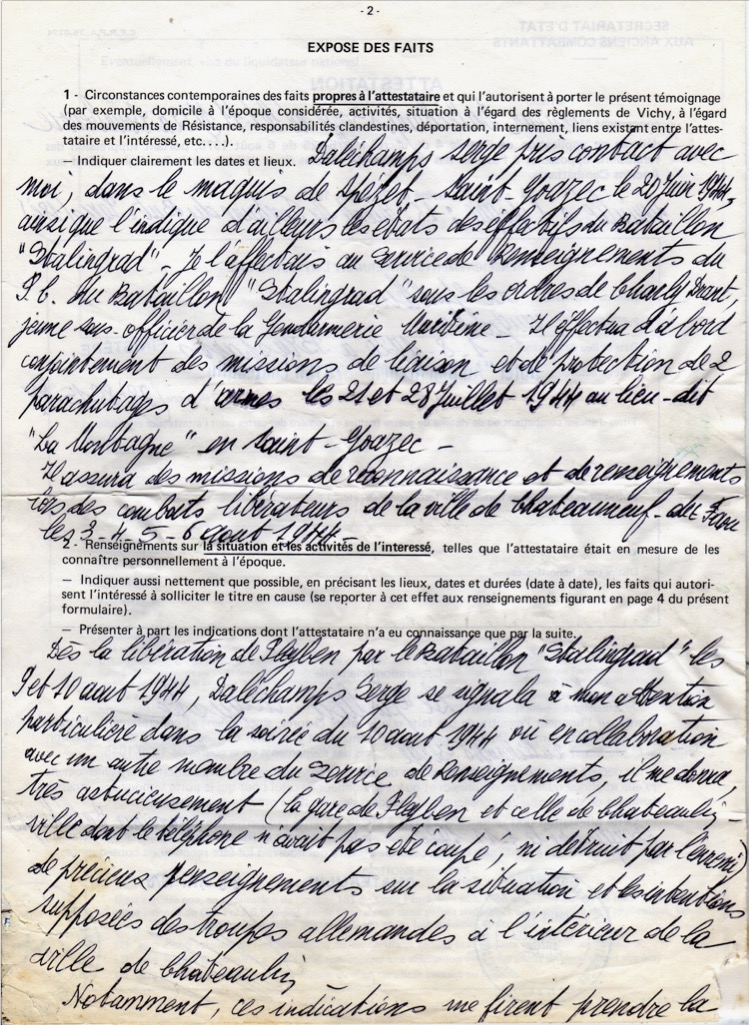 - 2 -
EXPOSE DES FAITS
1 - Circonstances contemporaines des faits propres à l'attestataire et qui l'autorisent à porter le présent témoignage
(par exemple, domicile à l'époque considérée, activités, situation à l'égard des règlements de Vichy, à l'égard
des mouvements de Résistance, responsabilités clandestines, déportation, internement, liens existant entre l'attes-
tataire et l'intéressé, etc. . . .).
— Indiquer clairement les dates et lieux.
Daléchamps Serge pris contact avec
moi, dans le maquis de Spézet - Saint-Goazec le 20 Juin 1944,
ainsi que l'indique d'ailleurs les états des effectifs du Bataillon
"Stalingrad" - Je l'affectais au Service de Renseignements du
P.C. du Bataillon "Stalingrad" sous les ordres de Charly
jeune sous-officier de la Gendarmerie Maritime - Il effectua d'abord
conjointement des missions de liaison et de protection de 2
parachutages d'armes les 21 et 28 Juillet 1944 au lieu-dit
"La Montagne" en Saint-Goazec -
Il assura des missions de reconnaissance et de renseignements
lors des combats libérateurs de la ville de Chateauneuf-du-Faou
les 3-4-5-6 aout 1944 -
2 - Renseignements sur la situation et les activités de l'interessé, telles que l'attestataire était en mesure de les
connaître personnellement à l'époque.
— Indiquer aussi nettement que possible, en précisant les lieux, dates et durées (date à date), les faits qui autori-
sent l'intéressé à solliciter le titre en cause (se reporter à cet effet aux renseignements figurant en page 4 du présent
formulaire).
— Présenter à part les indications dont l'attestataire n'a eu connaissance que par la suite.
Dès la libération de Pleyben par le Bataillon "Stalingrad" les
9 et 10 aout 1944, Daléchamps Serge se signala à mon attention
particulière dans la soirée du 10 aout 1944 où en collaboration
avec un autre membre du Service de Renseignements, il me donna,
très astucieusement (la gare de Pleyben et celle de Chateaulin -
ville dont le téléphone n'avait pas été coupé, ni détruit par l'ennemi)
de précieux renseignements sur la situation et les intentions
supposées des troupes allemandes à l'intérieur de la
ville de Chateaulin
Notamment, ces indications me firent prendre la